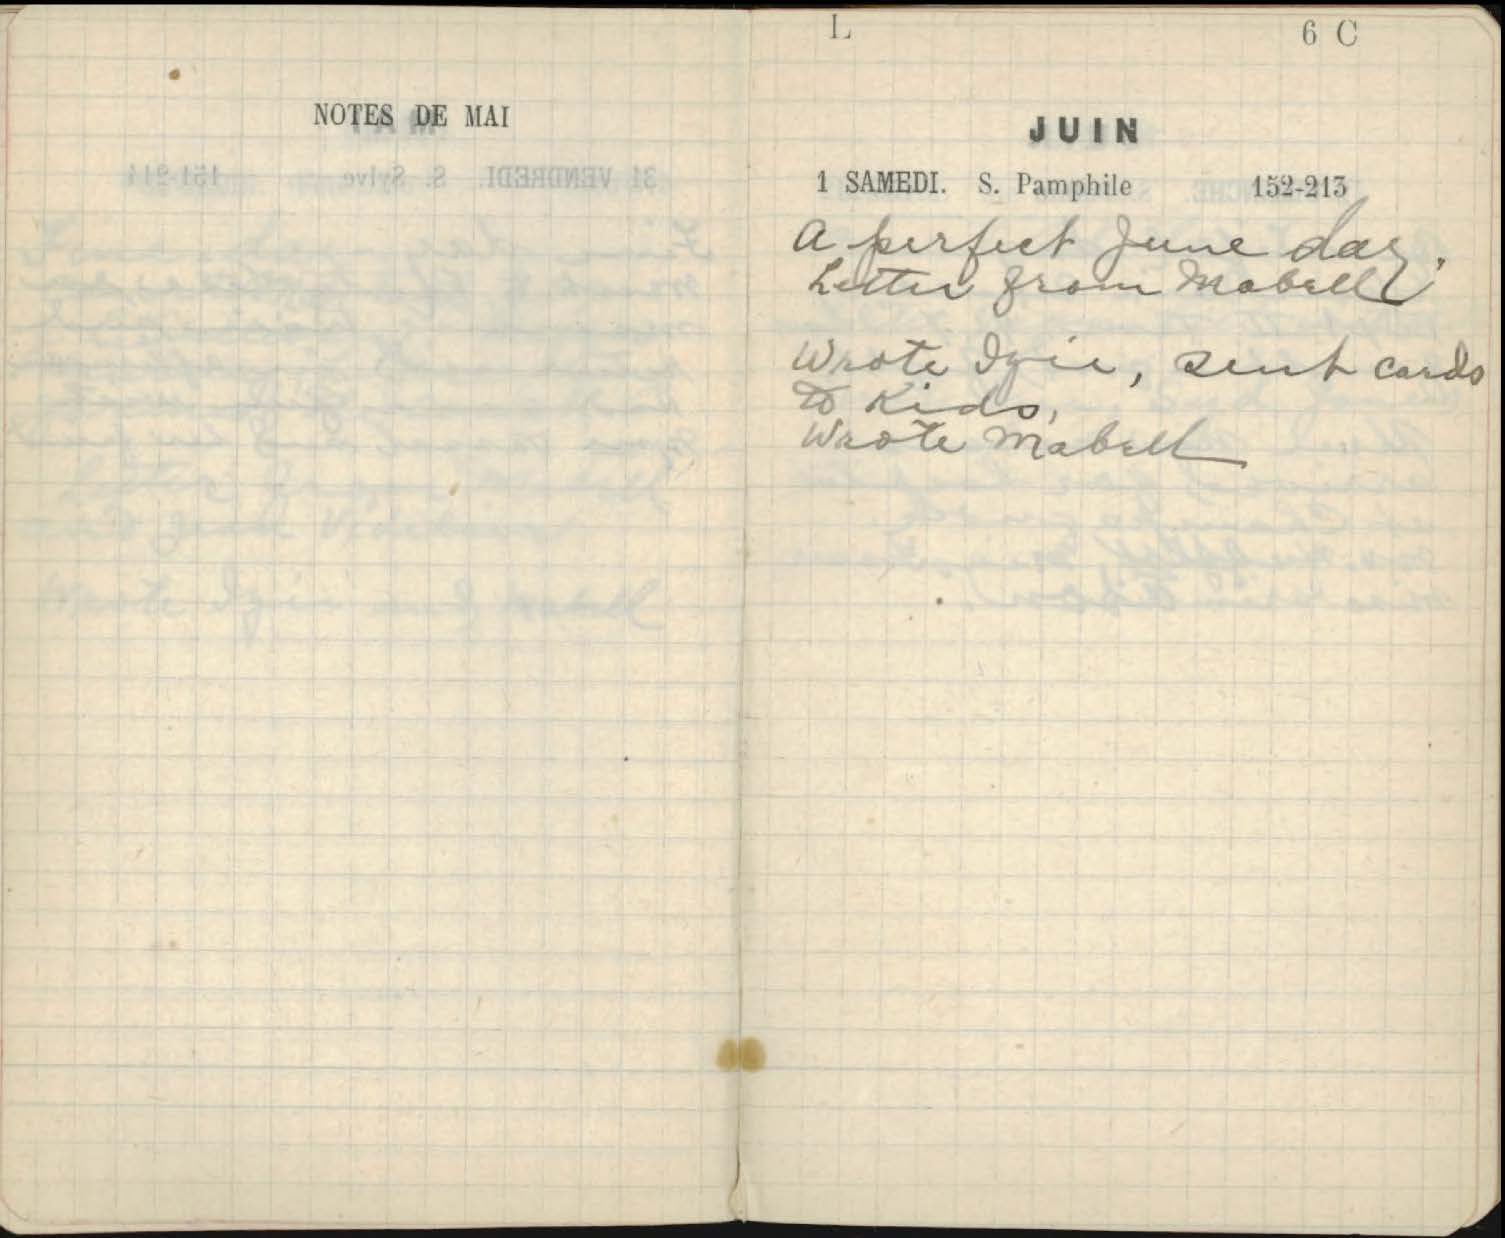 NOTES DE MAI
L 6 C
JUIN
1 SAMEDI. S. Pamphile 152-213
A perfect June day.
Letter from Mabell
Wrote Izie, sent cards
to Kids,
Wrote Mabell